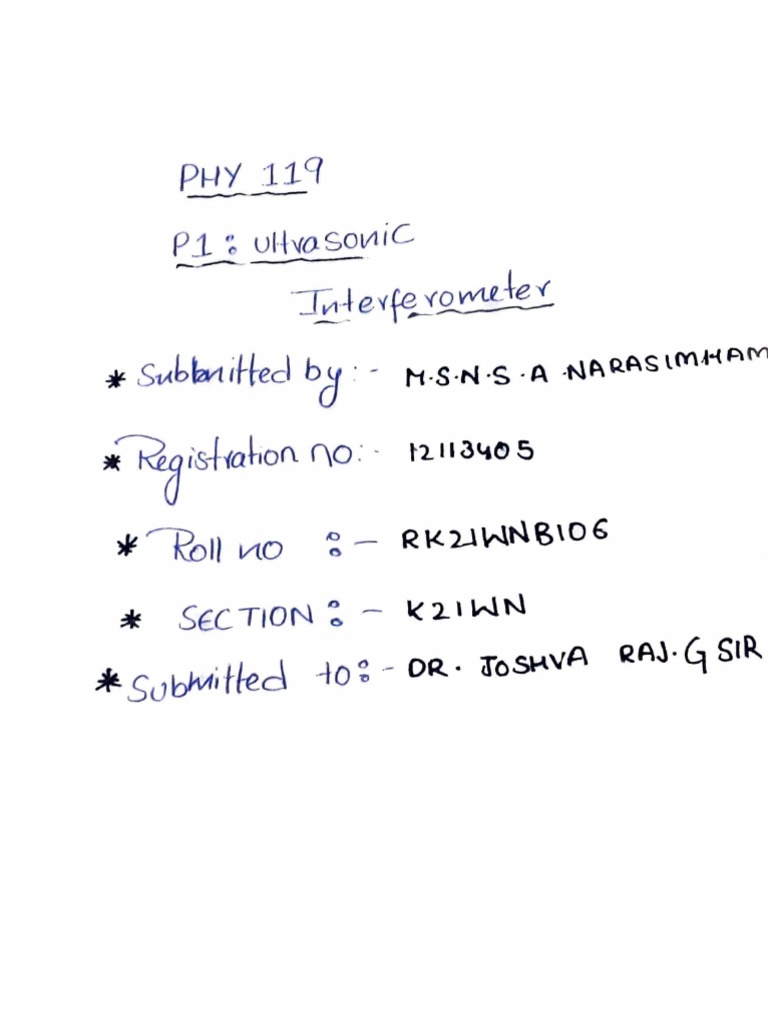 PHY 119
P1 : Ultrasonic
Interferometer
* Submitted by :- M.S.N.S.A.NARASIMHAM
* Registration no :- 12113405
* Roll no :- RK21WNB106
* SECTION :- K21WN
* Submitted to :- DR. JOSHVA RAJ.G SIR